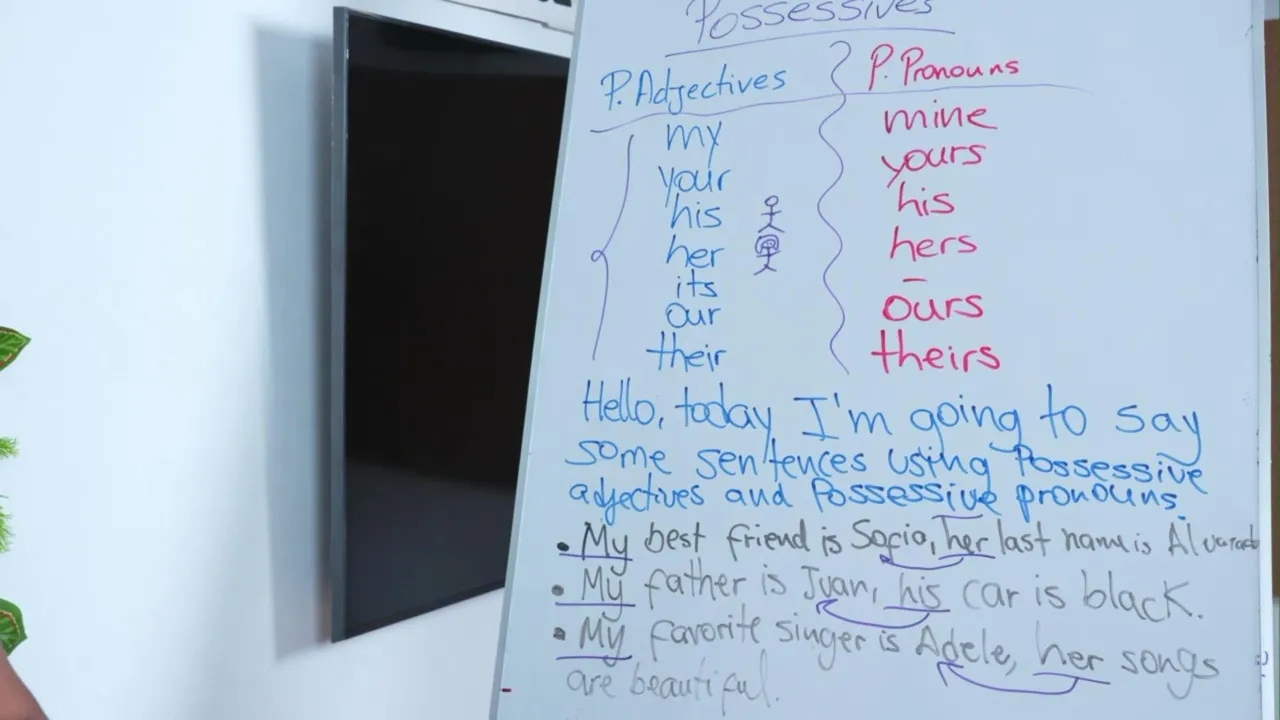 Possessives
P. Adjectives P. Pronouns
my mine
your yours
his his
her hers
its –
our ours
their theirs
Hello, today I'm going to say
some sentences using Possessive
adjectives and Possessive pronouns.
• My best friend is Sofia, her last name is Alvarado
• My father is Juan, his car is black.
• My favorite singer is Adele, her songs
are beautiful.